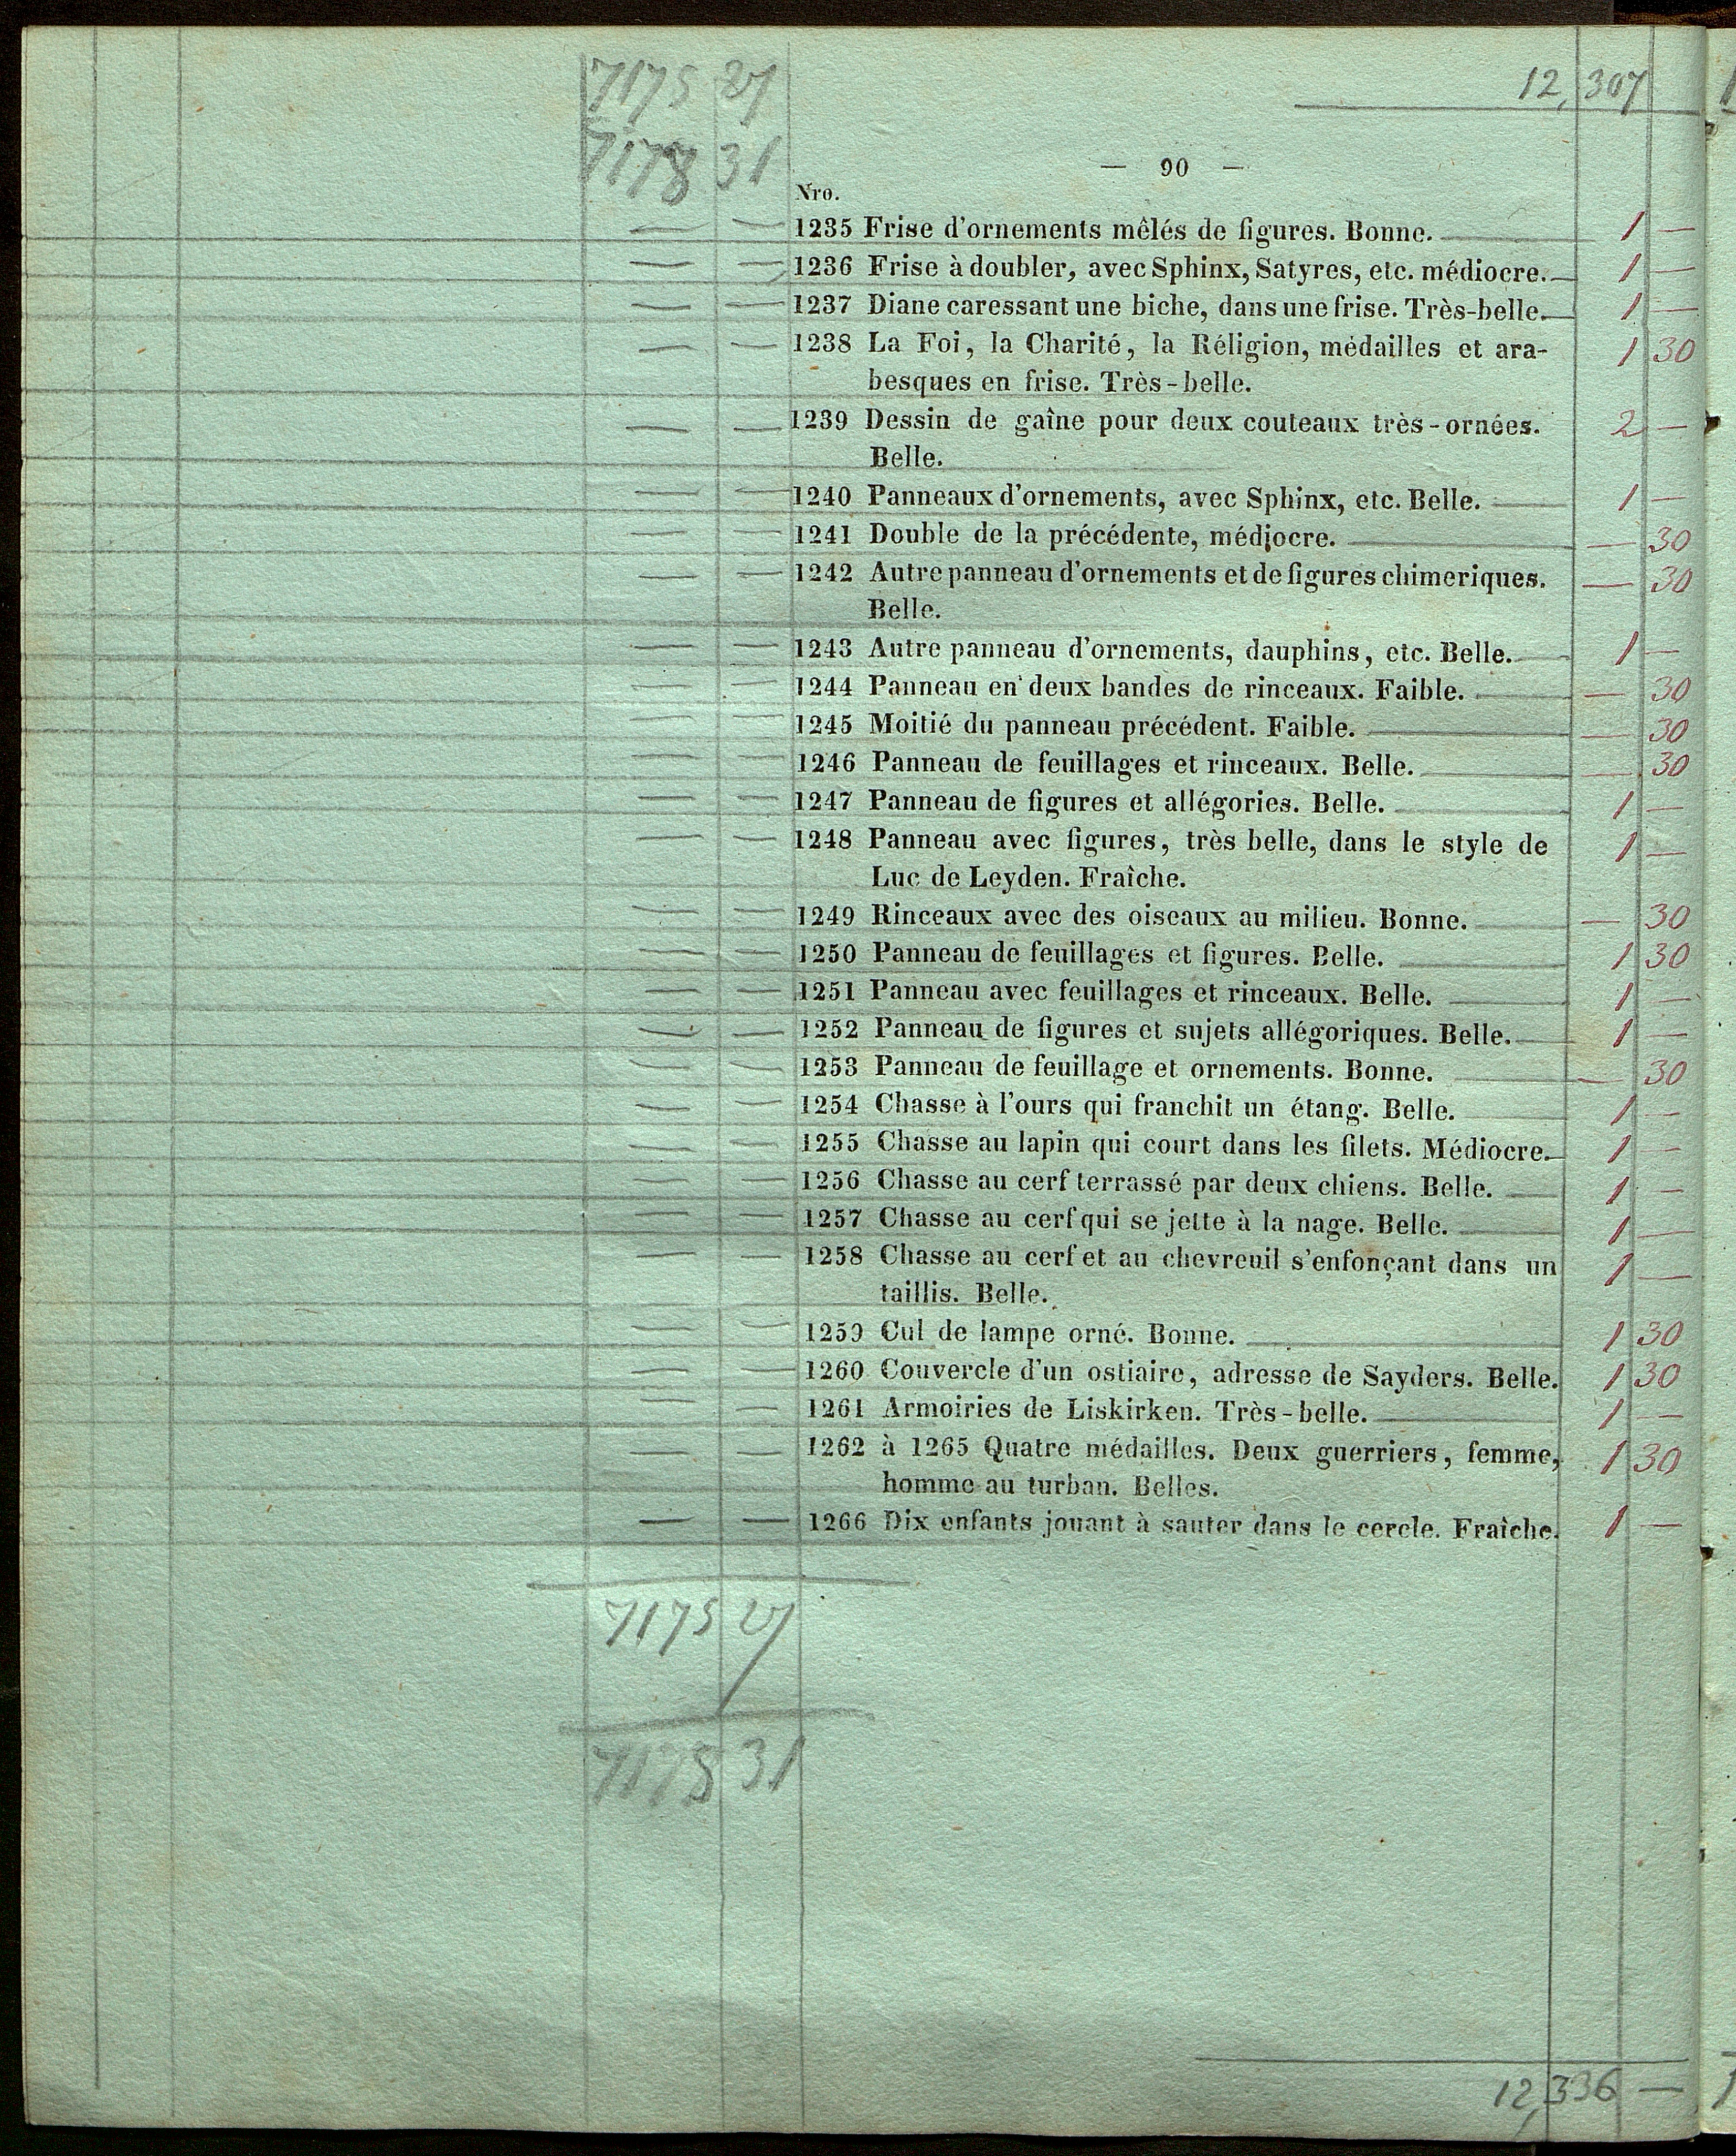 7175 27 12,307
7178 31
— 90 —
Nro.
— — 1235 Frise d'ornements mêlés de figures. Bonne. 1 —
— — 1236 Frise à doubler, avec Sphinx, Satyres, etc. médiocre. 1 —
— — 1237 Diane caressant une biche, dans une frise. Très-belle. 1 —
— — 1238 La Foi, la Charité, la Réligion, médailles et ara- 1 30
besques en frise. Très-belle.
— — 1239 Dessin de gaîne pour deux couteaux très-ornées. 2 —
Belle.
— — 1240 Panneaux d'ornements, avec Sphinx, etc. Belle. 1 —
— — 1241 Double de la précédente, médiocre. — 30
— — 1242 Autre panneau d'ornements et de figures chimeriques. — 30
Belle.
— — 1243 Autre panneau d'ornements, dauphins, etc. Belle. 1 —
— — 1244 Panneau en deux bandes de rinceaux. Faible. — 30
— — 1245 Moitié du panneau précédent. Faible. — 30
— — 1246 Panneau de feuillages et rinceaux. Belle. — 30
— — 1247 Panneau de figures et allégories. Belle. 1 —
— — 1248 Panneau avec figures, très belle, dans le style de 1 —
Luc de Leyden. Fraîche.
— — 1249 Rinceaux avec des oiseaux au milieu. Bonne. — 30
— — 1250 Panneau de feuillages et figures. Belle. 1 30
— — 1251 Panneau avec feuillages et rinceaux. Belle. 1 —
— — 1252 Panneau de figures et sujets allégoriques. Belle. 1 —
— — 1253 Panneau de feuillage et ornements. Bonne. — 30
— — 1254 Chasse à l'ours qui franchit un étang. Belle. 1 —
— — 1255 Chasse au lapin qui court dans les filets. Médiocre. 1 —
— — 1256 Chasse au cerf terrassé par deux chiens. Belle. 1 —
— — 1257 Chasse au cerf qui se jette à la nage. Belle. 1 —
— — 1258 Chasse au cerf et au chevreuil s'enfonçant dans un 1 —
taillis. Belle.
— — 1259 Cul de lampe orné. Bonne. 1 30
— — 1260 Couvercle d'un ostiaire, adresse de Sayders. Belle. 1 30
— — 1261 Armoiries de Liskirken. Très-belle. 1 —
— — 1262 à 1265 Quatre médailles. Deux guerriers, femme, 1 30
homme au turban. Belles.
— — 1266 Dix enfants jouant à sauter dans le cercle. Fraîche. 1 —
7175 27
7178 31
12,336 —